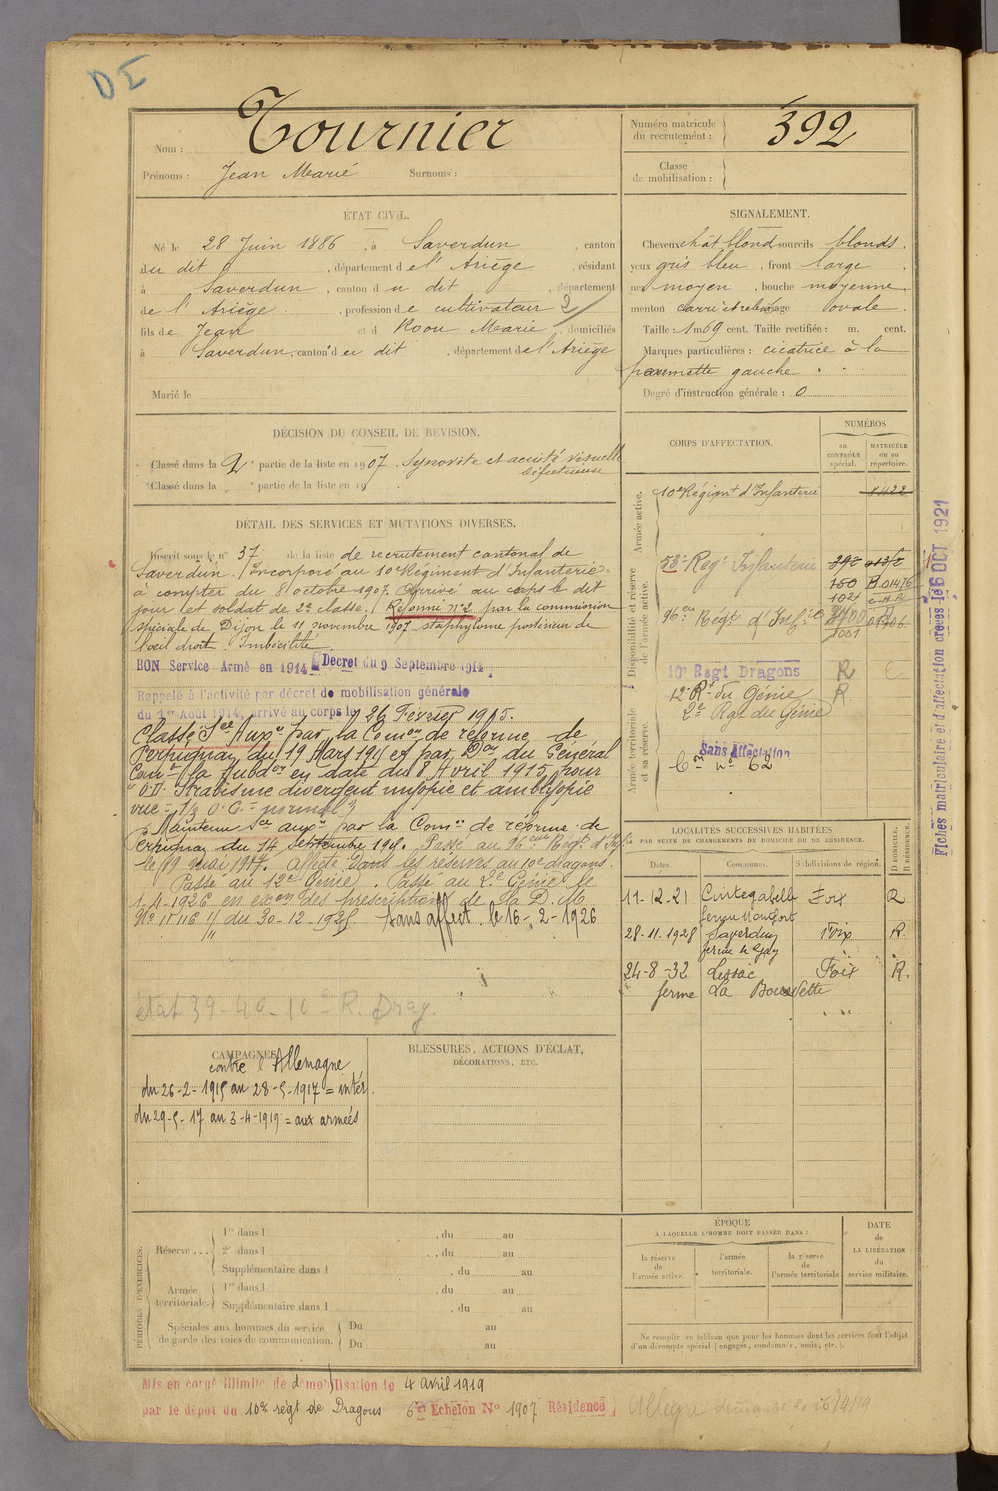 DI
Nom : Tournier
Prénoms : Jean Marie Surnoms :
Numéro matricule du recrutement : 392
Classe de mobilisation :
ÉTAT CIVIL.
Né le 28 Juin 1886, à Saverdun, canton
du dit, département de l'Ariège, résidant
à Saverdun, canton du dit, département
de l'Ariège, profession de cultivateur 2
fils de Jean et d Roou Marie, domiciliés
à Saverdun, canton du dit, département de l'Ariège
Marié le
SIGNALEMENT.
Cheveux chât blond sourcils blonds.
yeux gris bleu, front large
nez moyen, bouche moyenne
menton carré et relevé visage ovale.
Taille : 1m 69 cent. Taille rectifiée : m. cent.
Marques particulières : cicatrice à la
pommette gauche
Degré d'instruction générale : 0
DÉCISION DU CONSEIL DE REVISION.
Classé dans la 2e partie de la liste en 1907. Synovite et acuité visuelle
défectueuse
Classé dans la e partie de la liste en 19
DÉTAIL DES SERVICES ET MUTATIONS DIVERSES.
Inscrit sous le n° 37 de la liste de recrutement cantonal de
Saverdun. Incorporé au 10e Régiment d'Infanterie
à compter du 8 octobre 1907. Arrivé au corps le dit
jour et soldat de 2e classe. Réformé n°2 par la commission
spéciale de Dijon le 11 novembre 1907 staphylome postérieur de
l'œil droit. Imbécilité.
BON Service Armé en 1914 Décret du 9 Septembre 1914
Rappelé à l'activité par décret de mobilisation générale
du 1er Août 1914, arrivé au corps le 26 Février 1915.
Classé Sce Auxre par la Comon de réforme de
Perpignan du 19 Mars 1915 et par Don du Général
Comt la Subdon en date du 8 Avril 1915 pour
O.D. Strabisme divergent myopie et amblyopie
Maintenu Sce auxre par la Comon de réforme de
Perpignan du 14 Septembre 1915. Passé au 96eme Régt d'Infie
le 29 mai 1917. Affecté dans les réserves au 10e dragons.
Passé au 12e Génie. Passé au 2e Génie le
1-4-1926 en exon des prescriptions de la D.M.
N° 11116 1/11 du 30-12-1925 Sans affect. le 16-2-1926
état 39-40-10e R. Drag.
CORPS D'AFFECTATION.
NUMÉROS
au CONTRÔLE spécial.
MATRICULE ou au répertoire.
Armée active.
10e Régiment d'Infanterie
Disponibilité et réserve de l'armée active.
53e Reg. Infanterie
96eme Régt d'Infie
10e Regt Dragons R C
12e Rt du Génie R.
2e Rgt du Génie
Armée territoriale et sa réserve.
Sans Affectation
Fiches matriculaire et d'affectation créées le 6 OCT 1921
LOCALITÉS SUCCESSIVES HABITÉES
PAR SUITE DE CHANGEMENTS DE DOMICILE OU DE RÉSIDENCE.
Dates. Communes. Subdivisions de région. D DOMICILE. R RÉSIDENCE.
11-12-21 Cintegabelle Foix R
ferme Montfort
28-11-1928 Saverdun Foix R.
24-8-32 Foix R.
ferme
CAMPAGNES
contre l'Allemagne
du 26-2-1915 au 28-5-1917 = intér.
du 29-5-17 au 3-4-1919 = aux armées
BLESSURES, ACTIONS D'ÉCLAT,
DÉCORATIONS, ETC.
PÉRIODES D'EXERCICES.
Réserve...
1re dans l , du au
2e dans l , du au
Supplémentaire dans l , du au
Armée territoriale.
1re dans l , du au
Supplémentaire dans l , du au
Spéciales aux hommes du service de garde des voies de communication.
Du au
Du au
ÉPOQUE
À LAQUELLE L'HOMME DOIT PASSER DANS :
la réserve de l'armée active.
l'armée territoriale.
la réserve de l'armée territoriale
DATE DE LA LIBÉRATION du service militaire.
Ne remplir ce tableau que pour les hommes dont les services font l'objet
d'un décompte spécial (engagés, condamnés, omis, etc.).
Mis en congé illimité de démobilisation le 4 avril 1919
par le dépôt du 10e régt de Dragons 6e Echelon N° 1907 Résidence